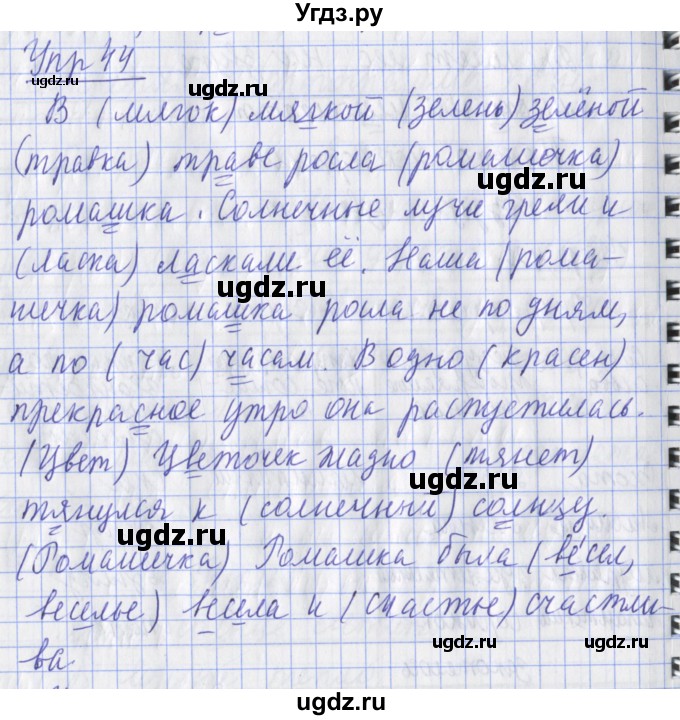 Угдз.ру
Упр 44
В (мягок) мягкой (зелень) зелёной
(травка) траве росла (ромашечка)
ромашка. Солнечные лучи грели и
(ласка) ласкали её. Наша (рома-
шечка) ромашка росла не по дням,
а по (час) часам. В одно (красен)
прекрасное утро она распустилась.
(Цвет) Цветочек жадно (тянет)
тянулся к (солнечный) солнцу.
(Ромашечка) Ромашка была (ве́сел,
веселье) весела и (счастье) счастли-
ва
ugdz.ru
ugdz.ru
ugdz.ru
ugdz.ru
ugdz.ru
ugdz.ru
ugdz.ru
ugdz.ru
ugdz.ru
ugdz.ru
ugdz.ru